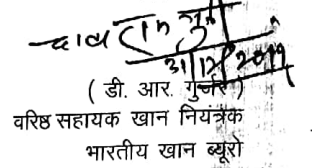 31/12/2011
( डी. आर. गुर्जर )
वरिष्ठ सहायक खान नियंत्रक
भारतीय खान ब्यूरो